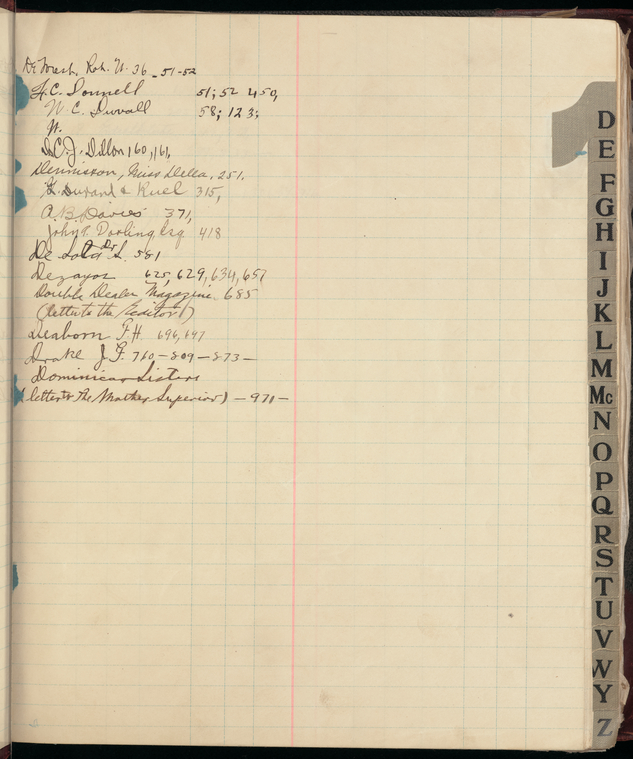 51-52
F.C. Donnell 51; 52 450,
W. C. Duvall 58; 123;
W.
D.C.J. Dillon 160, 161,
Dennison, Miss Della, 251.
Durand & Ruel 315,
A.B. Davies 371,
John P. Darling Esq 418
De Soto Dr L. 581
Dezayas 625, 629, 634, 657
Double Dealer Magazine. 685
(letter to the Editor)
Deaborn F.H. 696, 697
Drake J.F. 760-809-873-
Dominican Sisters
(letter to the Mother Superior) - 971 -
D
E
F
G
H
I
J
K
L
M
Mc
N
O
P
Q
R
S
T
U
V
W
Y
Z